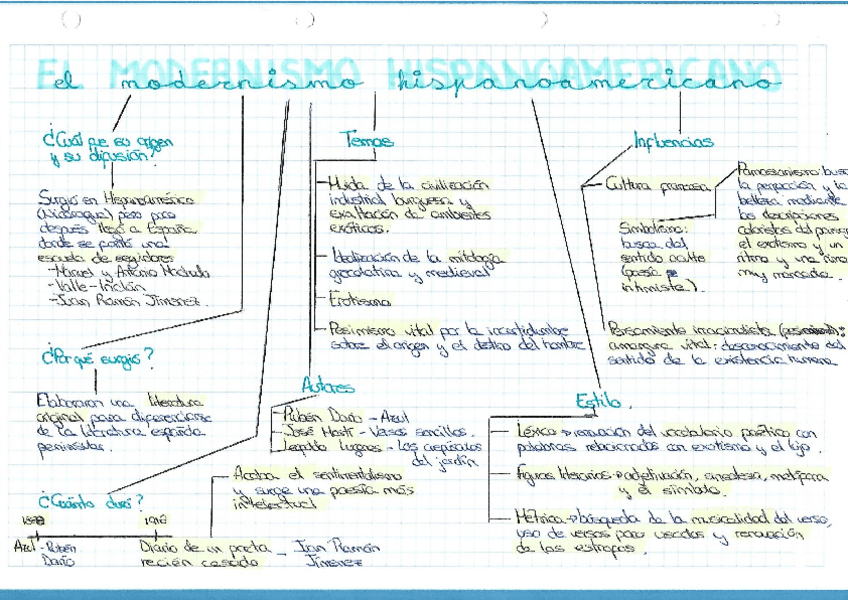 El modernismo hispanoamericano
¿Cuál fue su origen
y su difusión?
Surgió en Hispanoamérica
(Nicaragua) pero poco
después llegó a España
donde se formó una
escuela de seguidores
-Manuel y Antonio Machado
-Valle-Inclán
-Juan Ramón Jiménez.
¿Por qué surgió?
Elaboraron una literatura
original para diferenciarse
de la literatura española
peninsular.
¿Cuánto duró?
1888
1916
Azul -Rubén
Darío
Diario de un poeta
recién casado
- Juan Ramón
Jiménez
Acaba el sentimentalismo
y surge una poesía más
intelectual
Temas
Huida de la civilización
industrial burguesa y
exaltación de ambientes
exóticos.
Idealización de la mitología
grecolatina y medieval
Erotismo
Pesimismo vital por la incertidumbre
sobre el origen y el destino del hombre
Autores
Rubén Darío - Azul
José Martí - Versos sencillos.
Leopoldo Lugones - Los crepúsculos
del jardín
Influencias
Cultura francesa
Simbolismo:
busca del
sentido oculto
(poesía
intimista).
Parnasianismo: busc
la perfección y la
belleza mediante
las descripciones
coloristas del
el erotismo y un
ritmo y una rima
muy marcada.
Pensamiento irracionalista
amargura vital: desconocimiento del
sentido de la existencia humana
Estilo.
Léxico → renovación del vocabulario poético con
palabras relacionadas con exotismo y el lujo.
Figuras literarias → adjetivación, sinestesia, metáfora
y el símbolo.
Métrica → búsqueda de la musicalidad del verso,
uso de versos poco usados y renovación
de las estrofas.